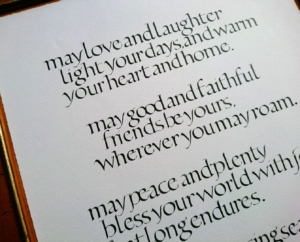 may love and laughter
light your days, and warm
your heart and home.
may good and faithful
friends be yours,
wherever you may roam.
may peace and plenty
bless your world with j
at long endures.
ing sea